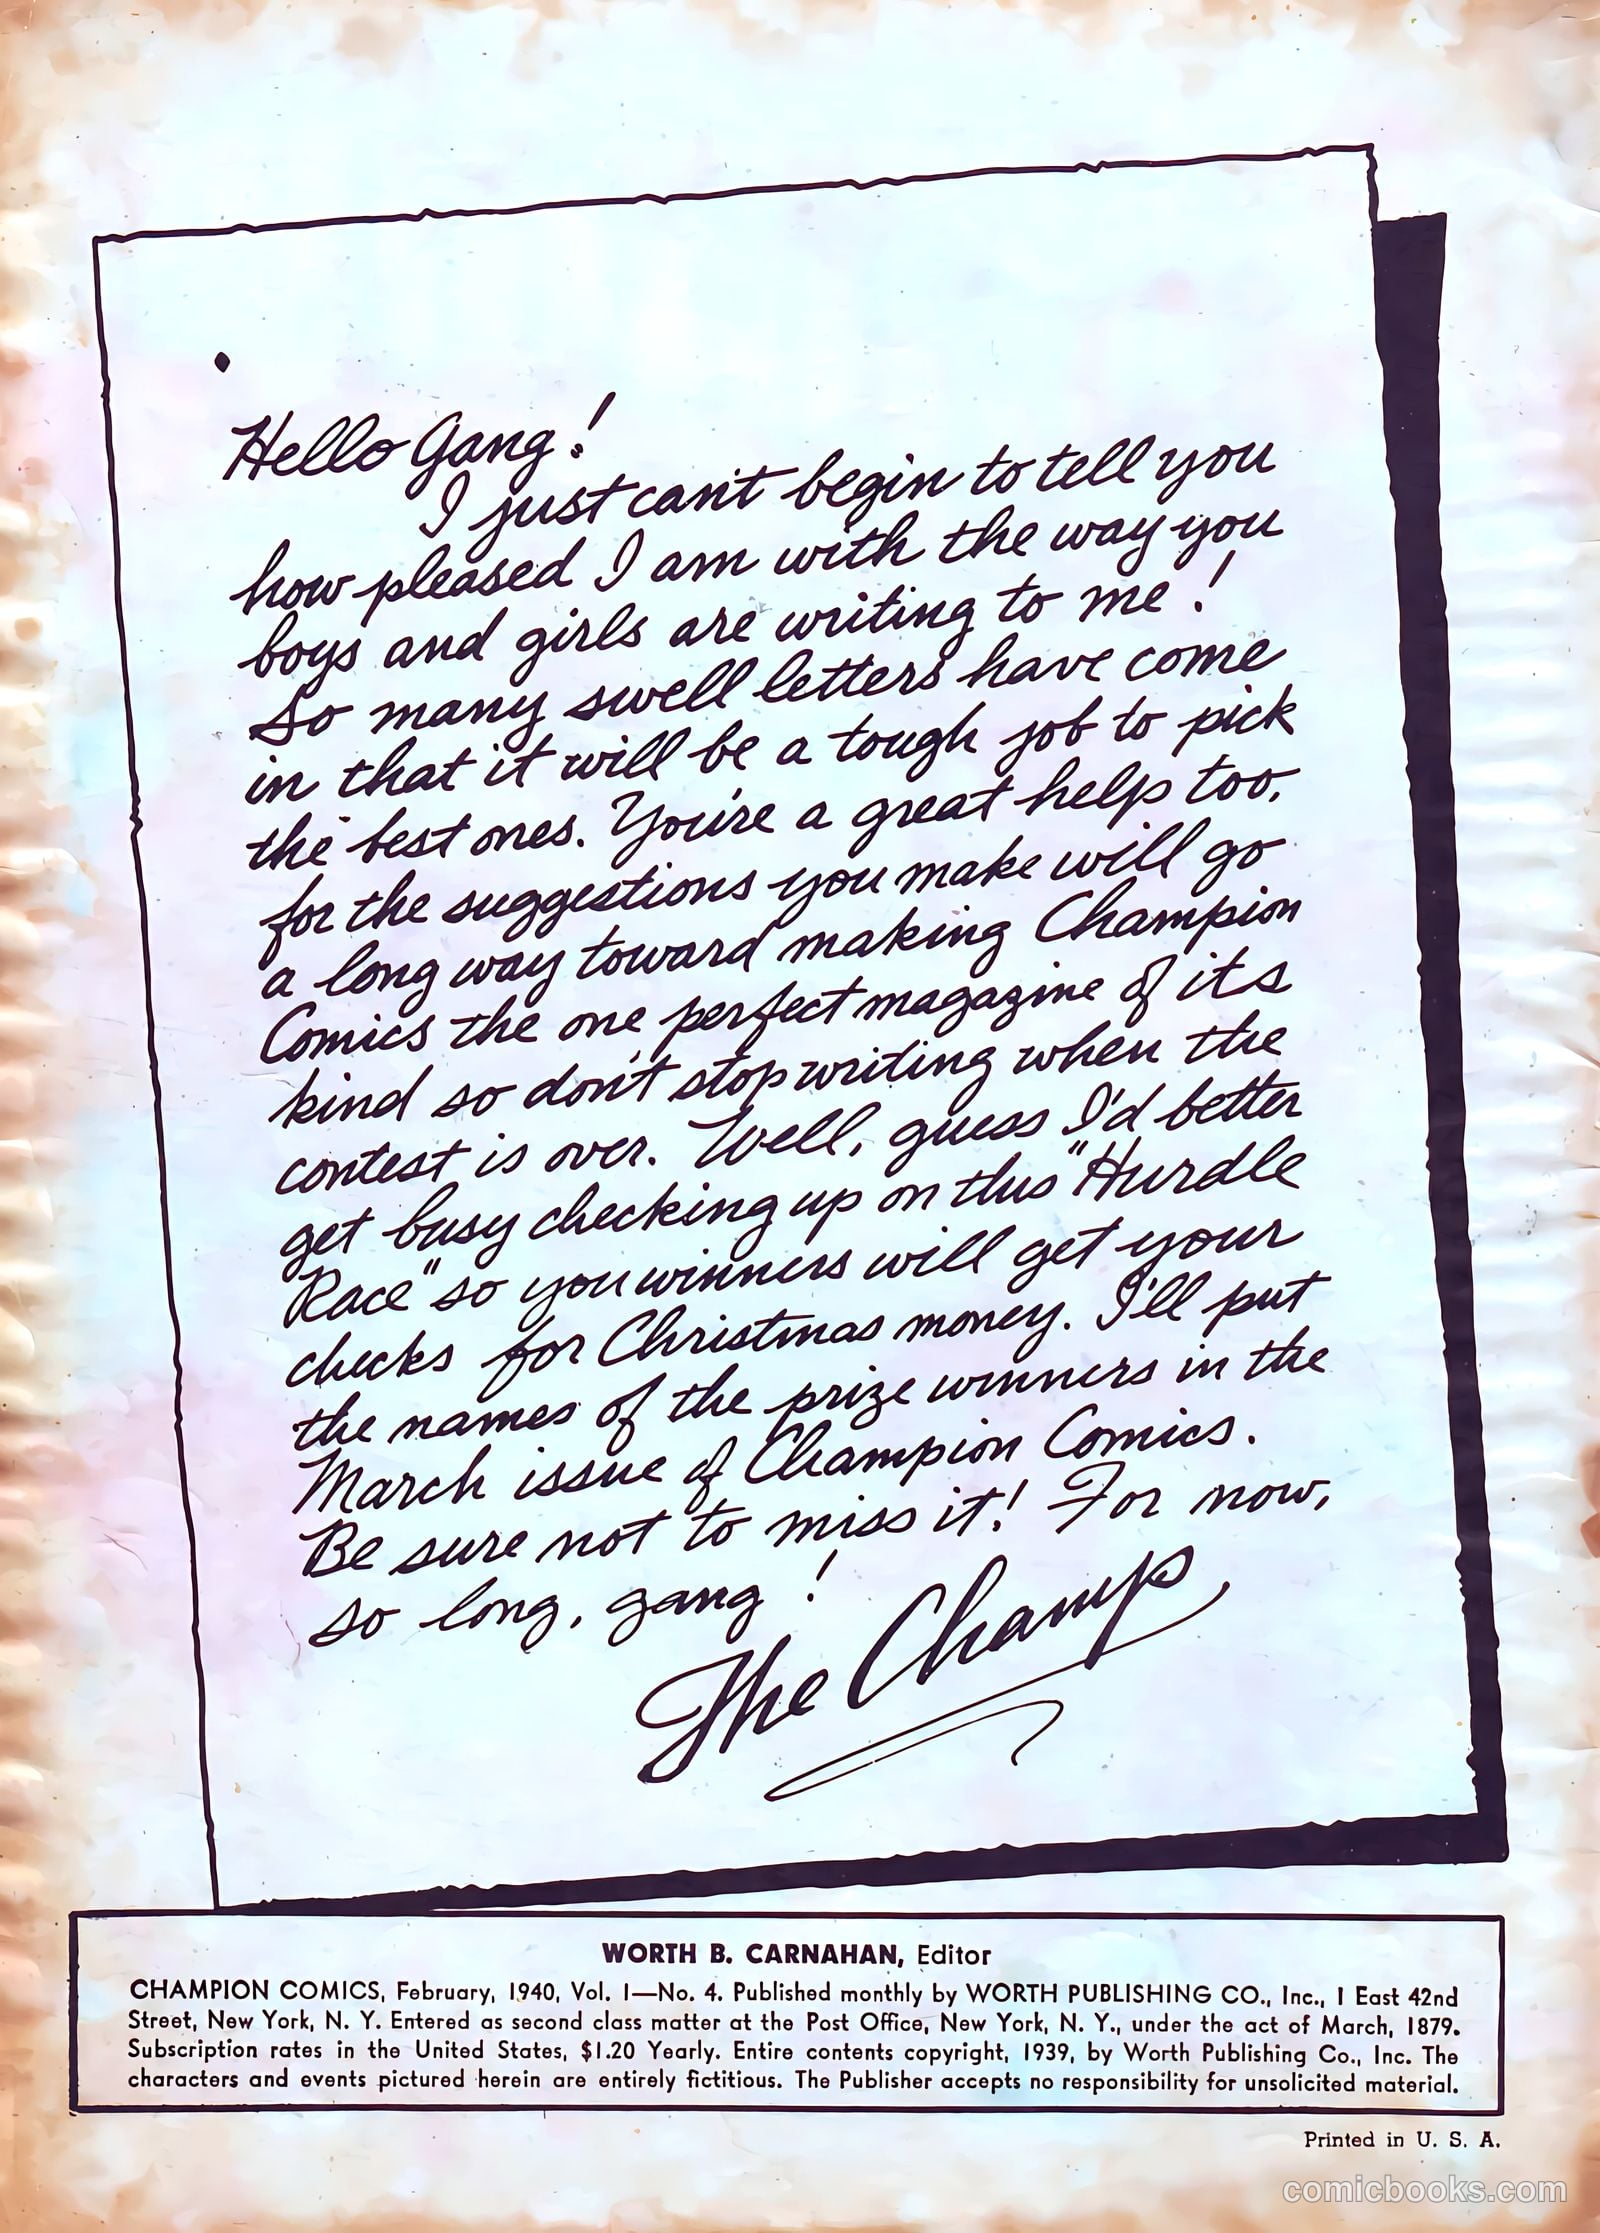 Hello Gang!
I just can't begin to tell you
how pleased I am with the way you
boys and girls are writing to me!
So many swell letters have come
in that it will be a tough job to pick
the best ones. You're a great help too,
for the suggestions you make will go
a long way toward making Champion
Comics the one perfect magazine of its
kind so don't stop writing when the
contest is over. Well, guess I'd better
get busy checking up on this "Hurdle
Race" so you winners will get your
checks for Christmas money. I'll put
the names of the prize winners in the
March issue of Champion Comics.
Be sure not to miss it! For now,
so long, gang!
The Champ
WORTH B. CARNAHAN, Editor
CHAMPION COMICS, February, 1940, Vol. 1—No. 4. Published monthly by WORTH PUBLISHING CO., Inc., 1 East 42nd
Street, New York, N. Y. Entered as second class matter at the Post Office, New York, N. Y., under the act of March, 1879.
Subscription rates in the United States, $1.20 Yearly. Entire contents copyright, 1939, by Worth Publishing Co., Inc. The
characters and events pictured herein are entirely fictitious. The Publisher accepts no responsibility for unsolicited material.
Printed in U. S. A.
comicbooks.com